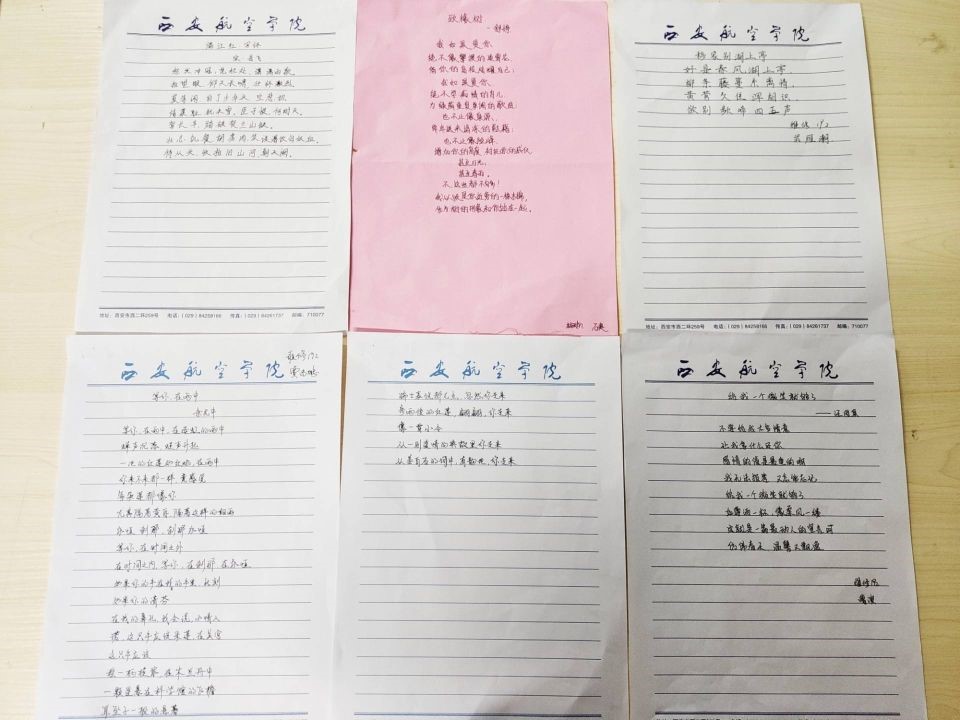 西安航空学院
满江红 写怀
宋 岳飞
怒发冲冠,凭栏处,潇潇雨歇
抬望眼,仰天长啸,壮怀激烈
莫等闲 白了少年头 空悲切
靖康耻,犹未雪,臣子恨,何时灭。
驾长车,踏破贺兰山缺。
壮志饥餐胡虏肉,笑谈渴饮匈奴血
待从头,收拾旧山河,朝天阙。
地址:西安市西二环259号 电话:(029)84259166 传真:(029)84261737 邮编:710077
致橡树
-舒婷
我如果爱你,
绝不像攀援的凌霄花
借你的高枝炫耀自己;
我如果爱你,
绝不学痴情的鸟儿
为绿荫重复单调的歌曲
也不止像泉源,
常年送来清凉的慰藉;
也不止像险峰
增加你的高度,衬托你的威仪
甚至日光,
甚至春雨。
不,这些都不够!
我必须是你近旁的一株木棉,
作为树的形象和你站在一起。
西安航空学院
移家别湖上亭
好是春风湖上亭
柳条藤蔓系离情
黄莺久住浑相识
欲别频啼四五声
维修192
地址:西安市西二环259号 电话:(029)84259166 传真:(029)84261737 邮编:710077
西安航空学院
等你,在雨中
余光中
等你,在雨中,在造虹的雨中
蝉声沉落,蛙声升起
一池的红莲如红焰,在雨中
你来不来都一样,竟感觉
每朵莲都像你
尤其隔着黄昏,隔着这样的细雨
永恒,刹那,刹那,永恒
等你,在时间之外
在时间之内,等你,在刹那,在永恒
如果你的手在我的手里,此刻
如果你的清芬
在我的鼻孔,我会说,小情人
诺,这只手应该采莲,在吴宫
这只手应该
摇一柄桂桨,在木兰舟中
一颗星悬在科学馆的飞檐
耳坠子一般的悬着
西安航空学院
瑞士表说都七点,忽然你走来
步雨后的红莲,翩翩,你走来
像一首小令
从一则爱情的典故里你走来
从姜白石的词中,有韵地,你走来
西安航空学院
给我一个微笑就够了
——汪国真
不要给我太多情意
让我拿什么还你
感情的债是最重的啊
我无法报答 又怎能忘记
给我一个微笑就够了
如薄酒一杯,像柔风一缕
这是一篇最动人的宣言呵
仿佛春天 温馨又飘逸